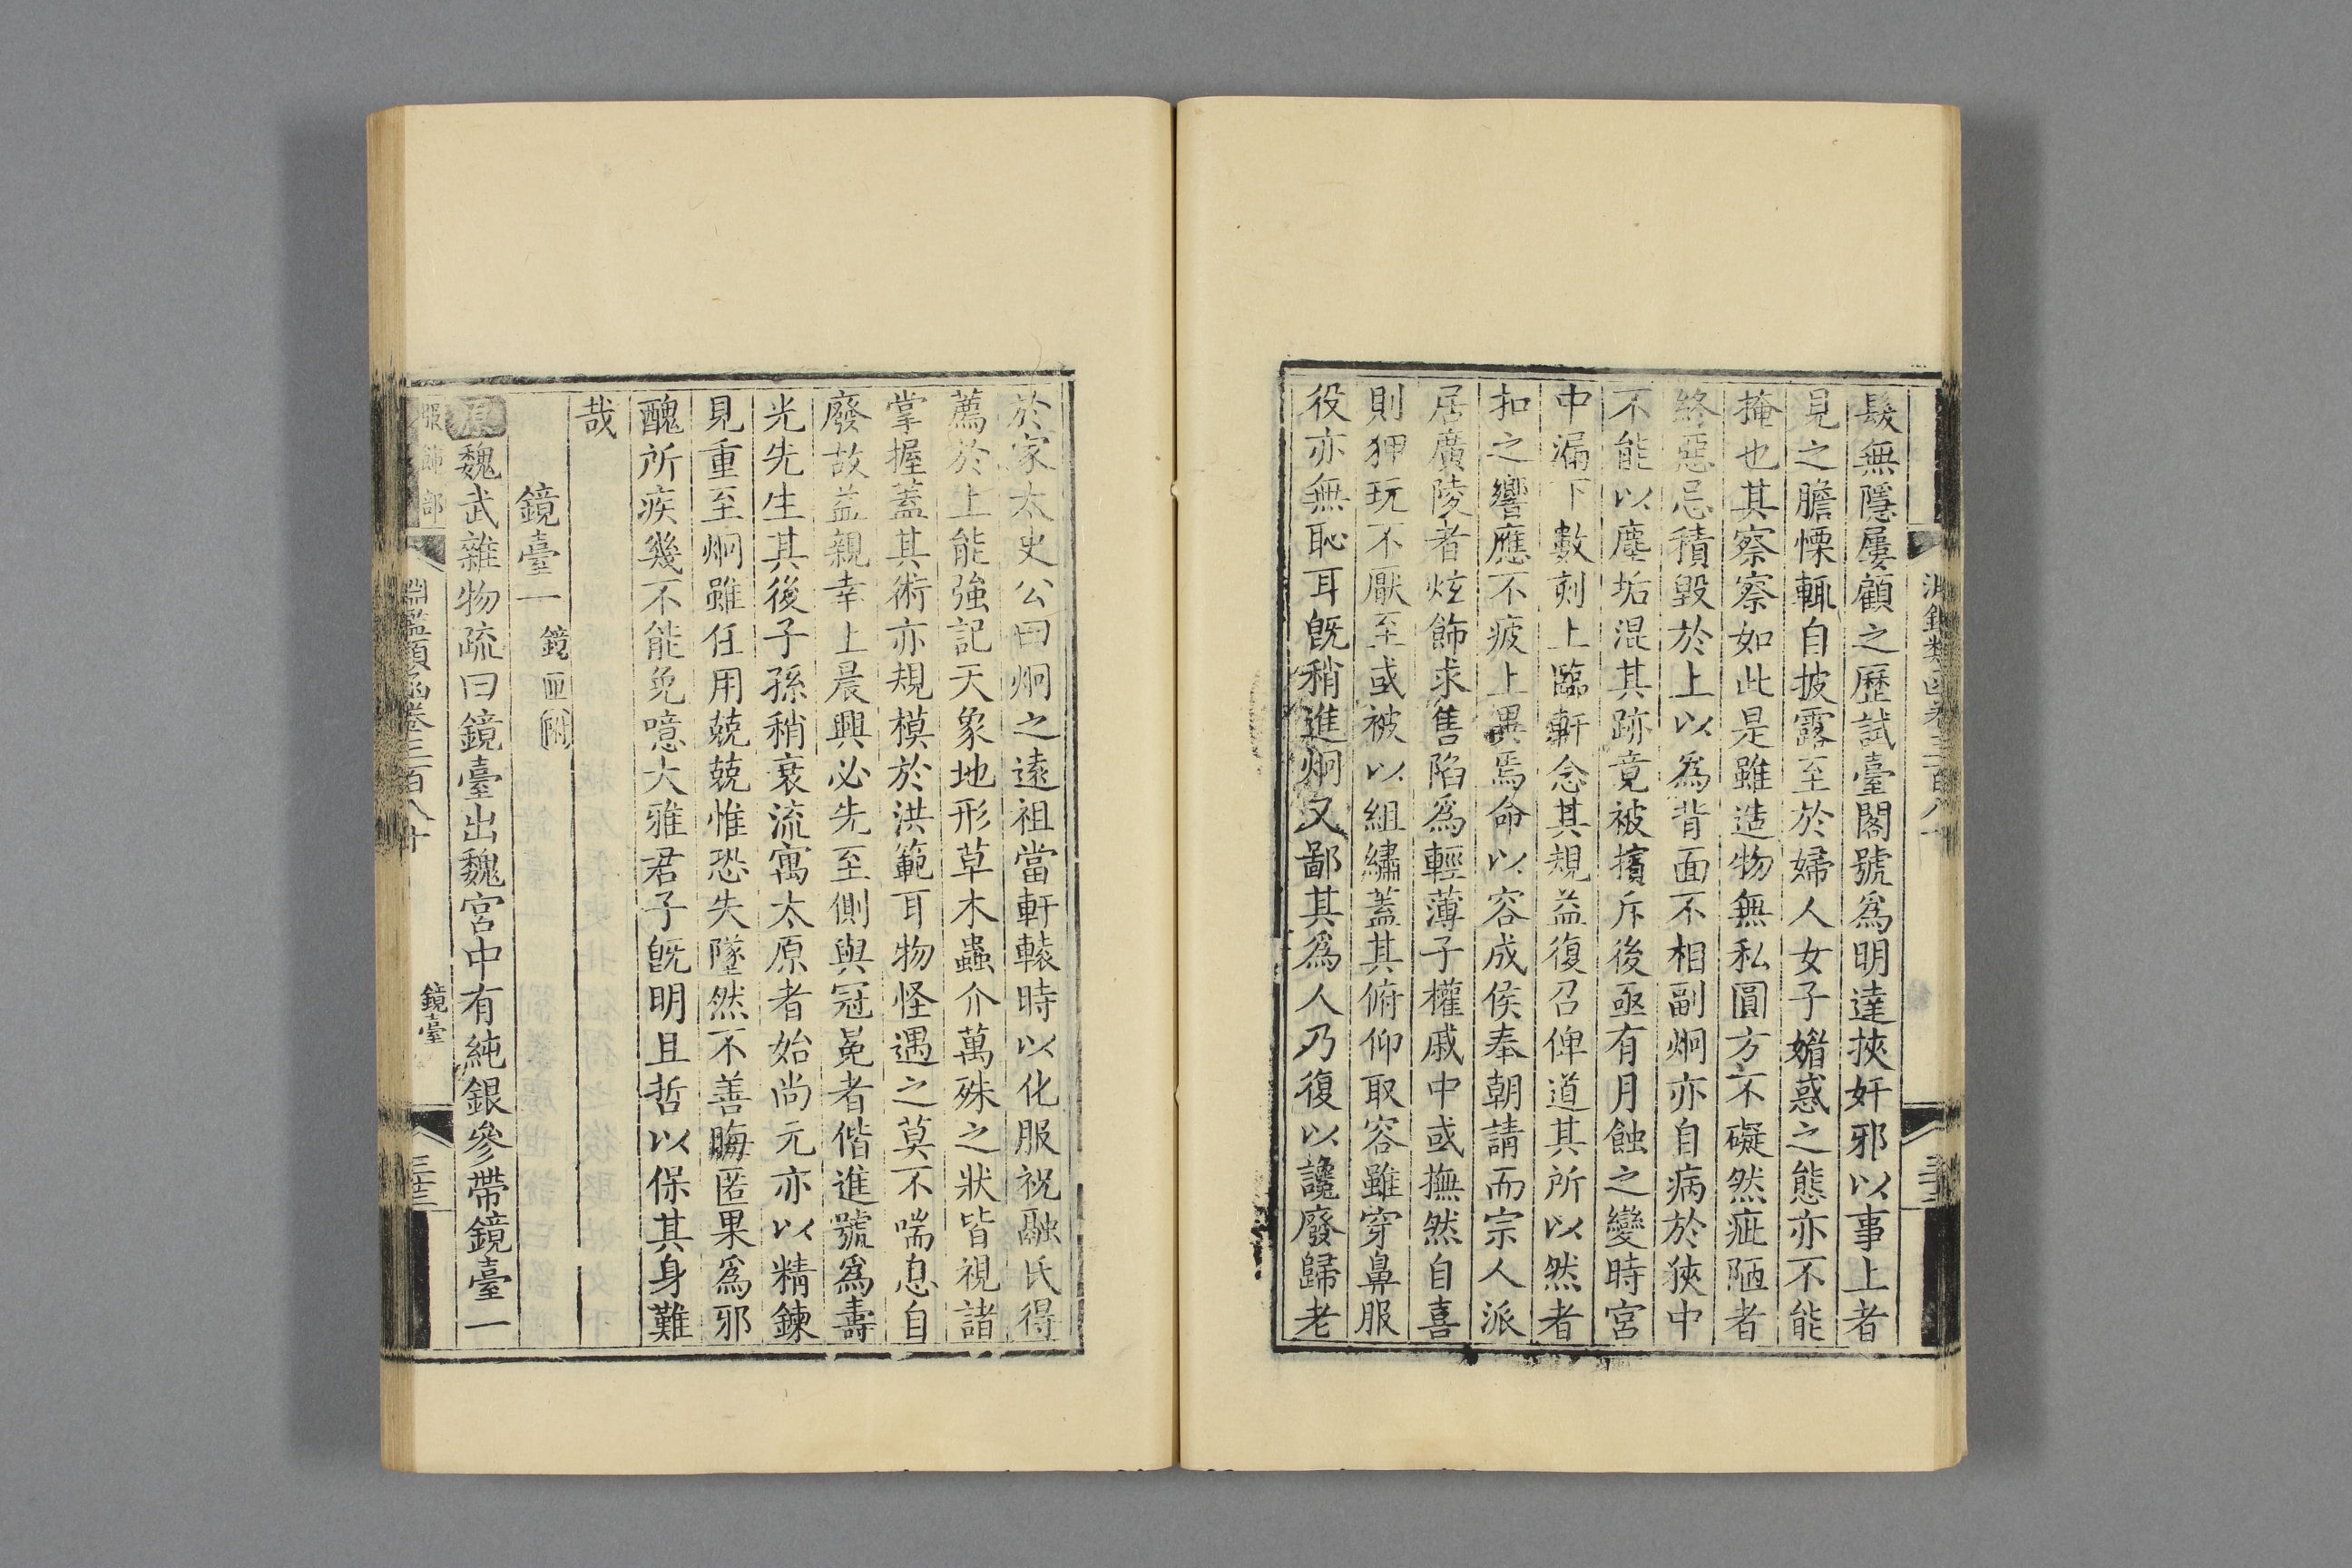 淵鑑類函卷三百八十
髮無隱屢顧之歷試臺閣號爲明達挾奸邪以事上者
見之膽慄輒自披露至於婦人女子媚惑之態亦不能
掩也其察察如此是雖造物無私圓方不礙然疵陋者
終惡忌積毀於上以爲背面不相副炯亦自病於狹中
不能以塵垢混其跡竟被擯斥後亟有月蝕之變時宮
中漏下數刻上臨軒念其規益復召俾道其所以然者
扣之響應不疲上異焉命以容成侯奉朝請而宗人派
居廣陵者炫飾求售陷爲輕薄子權戚中或撫然自喜
則狎玩不厭至或被以組繡蓋其俯仰取容雖穿鼻服
役亦無恥耳旣稍進炯又鄙其爲人乃復以讒廢歸老
於家太史公曰炯之遠祖當軒轅時以化服祝融氏得
薦於上能強記天象地形草木蟲介萬殊之狀皆視諸
掌握蓋其術亦規模於洪範耳物怪遇之莫不喘息自
廢故益親幸上晨興必先至側與冠冕者偕進號爲壽
光先生其後子孫稍衰流寓太原者始尚元亦以精鍊
見重至炯雖任用兢兢惟恐失墜然不善晦匿果爲邪
醜所疾幾不能免噫大雅君子旣明且哲以保其身難
哉
鏡臺一 鏡匣附
原魏武雜物疏曰鏡臺出魏宮中有純銀參帶鏡臺一
服飾部 淵鑑類函卷三百八十 鏡臺 三十三